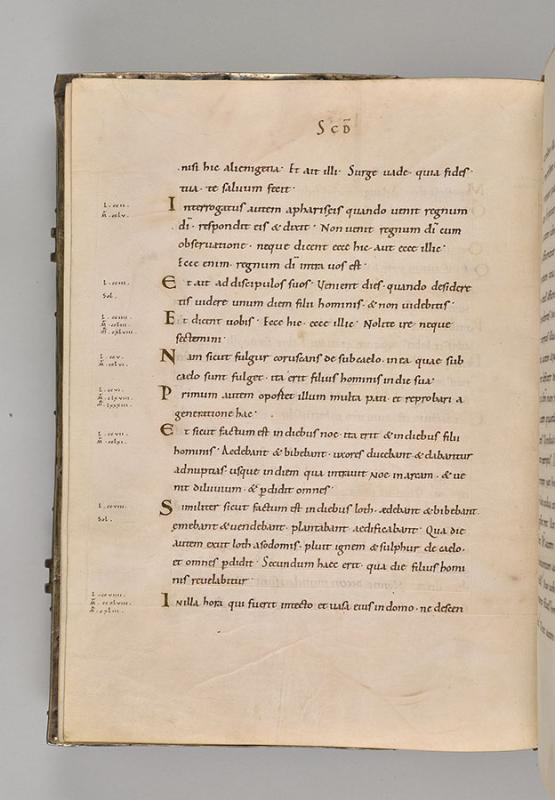 SCD
nisi hic alienigena · Et ait illi · Surge uade · quia fides
tua · te saluum fecit ·
Interrogatus autem apharisęis quando uenit regnum
di · respondit eis & dixit · Non uenit regnum di cum
obseruatione · neque dicent ecce hic · aut ecce illic ·
Ecce enim · regnum di intra uos est ·
Et ait ad discipulos suos · Venient dies · quando desidere
tis uidere unum diem filii hominis · & non uidebitis ·
Et dicent uobis · Ecce hic · ecce illic · Nolite ire · neque
sectemini ·
Nam sicut fulgur coruscans de subcaelo · in ea quae sub
caelo sunt fulget · ita erit filius hominis in die sua ·
Primum autem oportet illum multa pati · et reprobari a
generatione hac ·
Et sicut factum est in diebus noe · ita erit & in diebus filii
hominis · Aedebant & bibebant · uxores ducebant & dabantur
ad nuptias · usque in diem qua intrauit Noe in arcam · & ue
nit diluuium · & pdidit omnes ·
Similiter sicut factum est in diebus loth · aedebant & bibebant ·
emebant & uendebant · plantabant · aedificabant · Qua die
autem exiit loth asodomis · pluit ignem & sulphur de caelo ·
et omnes pdidit · Secundum haec erit · qua die filius homi
nis reuelabitur ·
In illa hora qui fuerit in tecto et uasa eius in domo · ne descen